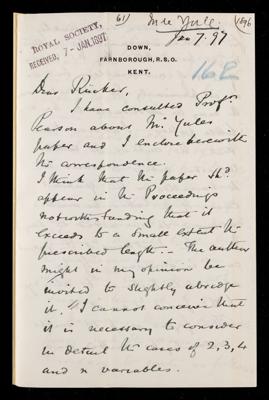 61) Mr Yule (1896
ROYAL SOCIETY,
RECEIVED, 7-JAN.1897
Jan 7. 97
DOWN,
FARNBOROUGH, R.S.O.
KENT.
162
Dear Rücker,
I have consulted Profr.
Pearson about Mr. Yules
paper and I enclose herewith
the correspondence.
I think that the paper shd.
appear in the Proceedings
notwithstanding that it
exceeds to a small extent the
prescribed length. - The author
might in my opinion be
invited to slightly abridge
it. I cannot conceive that
it is necessary to consider
in detail the cases of 2, 3, 4
and n variables.